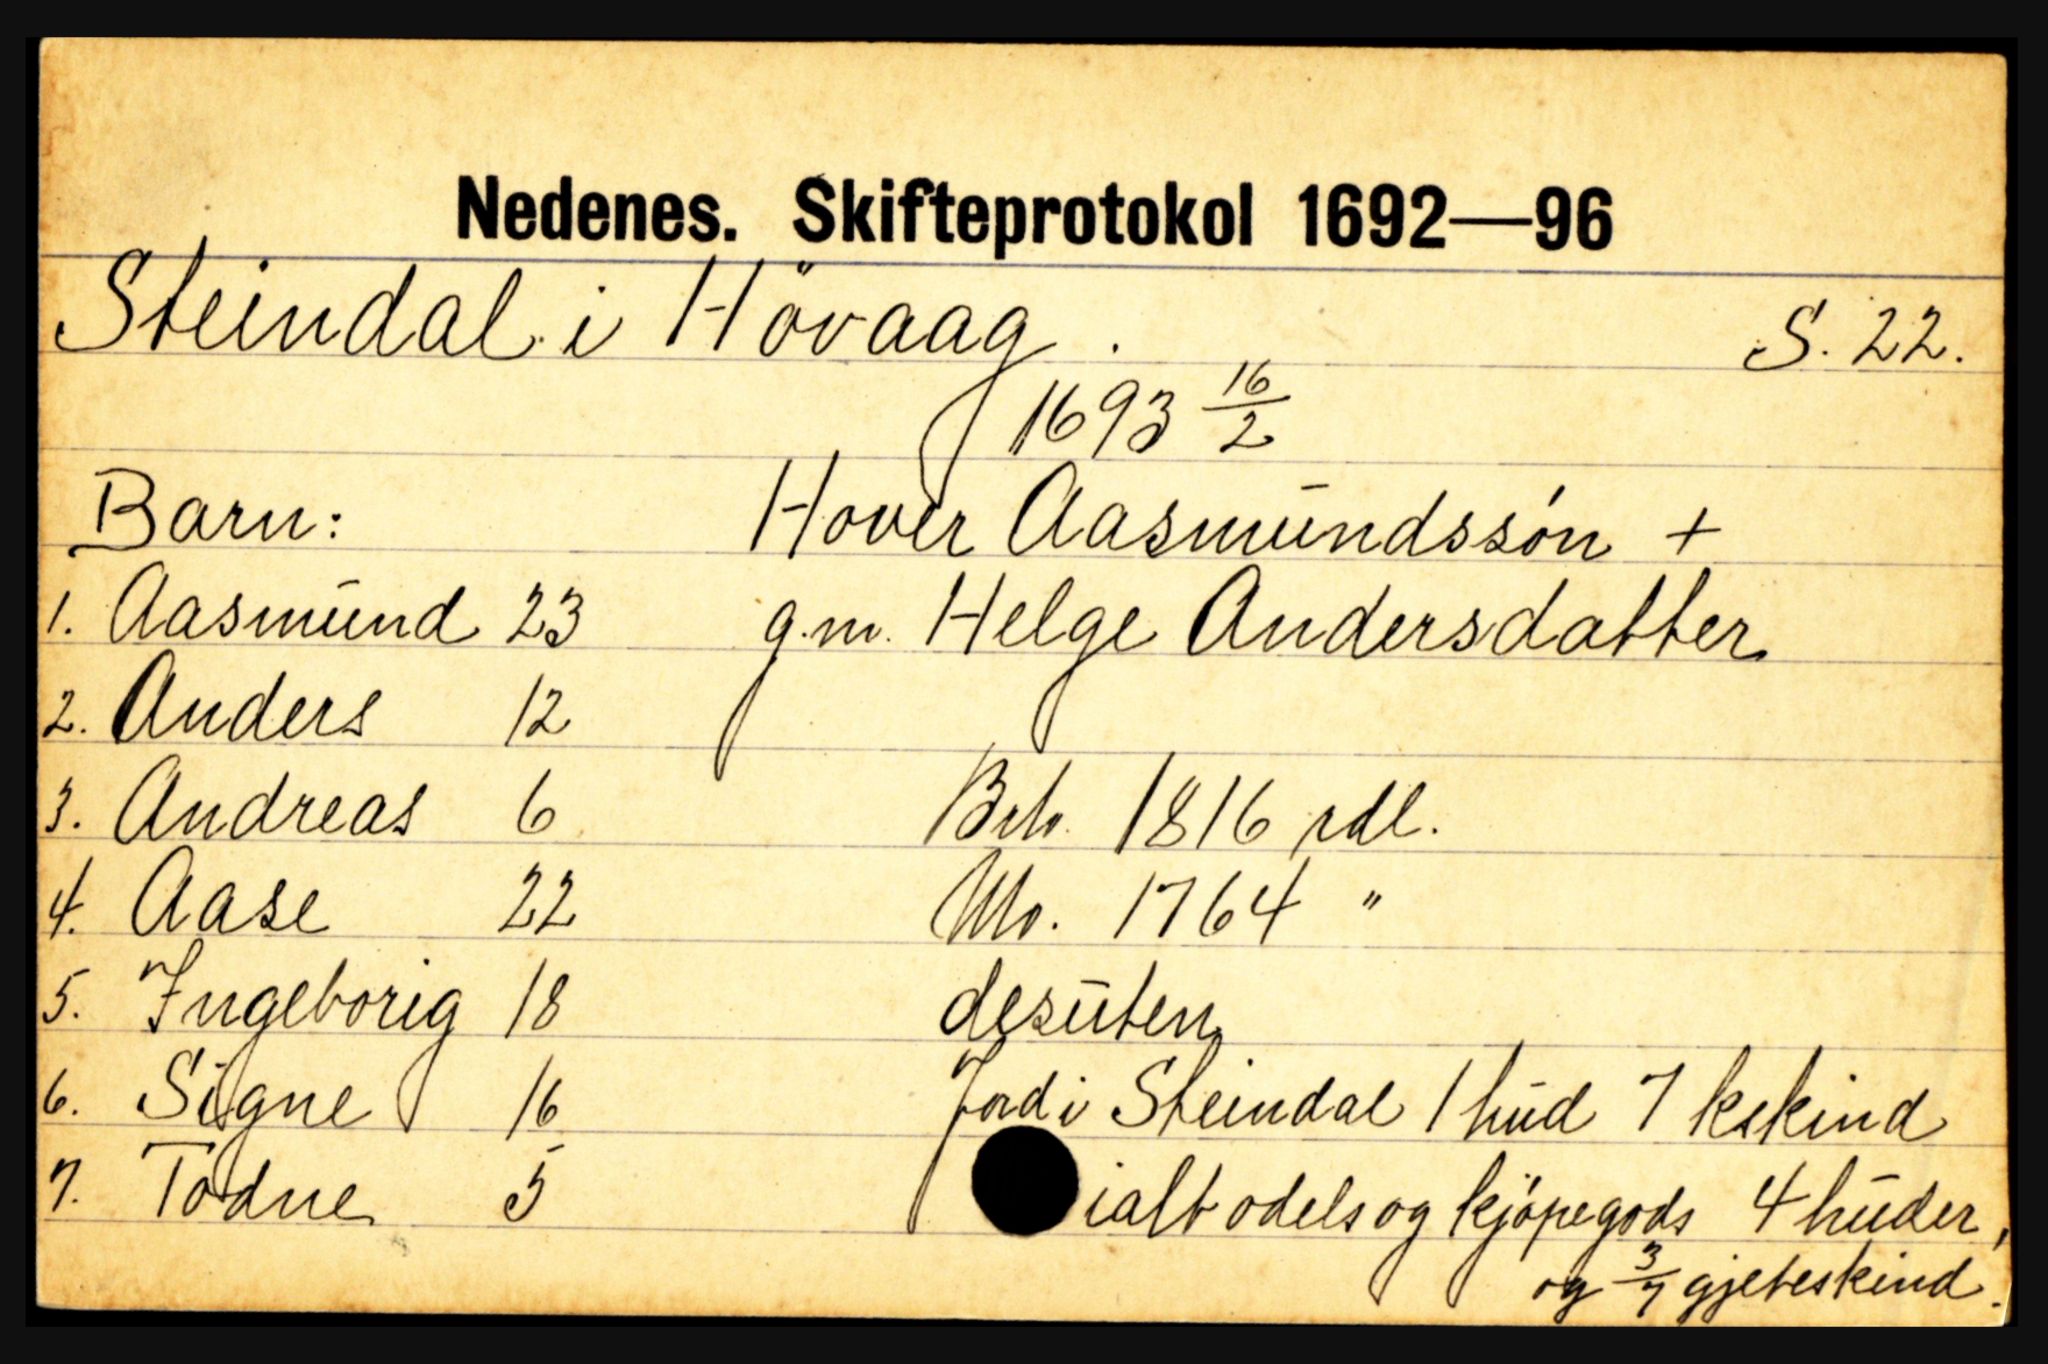 Nedenes. Skifteprotokol 1692—96
Steindal i Hövaag. S. 22.
1693 16/2
Barn: Hover Aasmundssön +
1. Aasmund 23 g.m. Helge Andersdatter
2. Anders 12
3. Andreas 6 Brto. 1816 rdl.
4. Aase 22 Nto. 1764 "
5. Ingeborig 18 desuten
6. Signe 16 Jord i Steindal 1 hud 7 kskind
7. Todne 5 ialt odels og kjöpegods 4 huder,
og 3/7 gjeteskind.